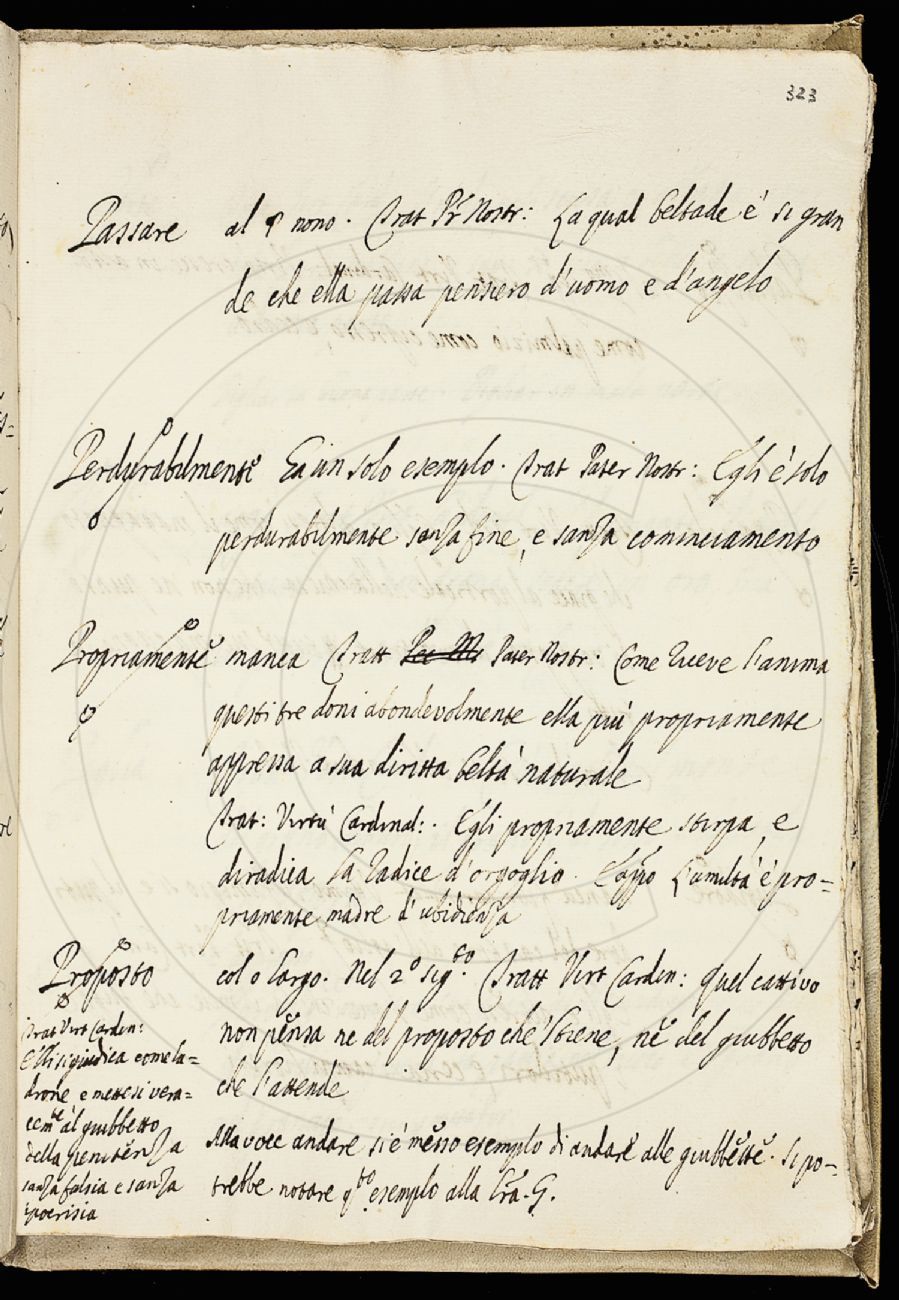 323
Passare al § nono. Trat Pr Nostr: La qual beltade è si gran
de che ella passa pensiero d'uomo e d'angelo
Perdurabilmente Ha un solo esemplo. Trat Pater Nostr: Egli è solo
perdurabilmente sanza fine, e sanza cominciamento
Propriamente manca Tratt Pater Nostr: Come riceve l'anima
questi tre doni abondevolmente ella più propriamente
appressa a sua diritta beltà naturale
Trat: Virtù Cardinal: Egli propriamente stirpa, e
diradica la radice d'orgoglio. E appo L'umiltà è pro=
priamente madre d'ubidienza
Proposto col o largo. Nel 2º sigto. Tratt Virt Carden: quel cattivo
non pensa ne del proposto che 'l tiene, nè del giubbetto
che l'attende
Alla voce andare si è messo esemplo di andare alle giubbette. Si po=
trebbe notare qto esemplo alla Lra. G.
Trat Virt Carden:
E' si giudica come la=
drone e mettesi vera=
cemte al giubbetto
della penitenza
sanza falsia e sanza
ipocrisia